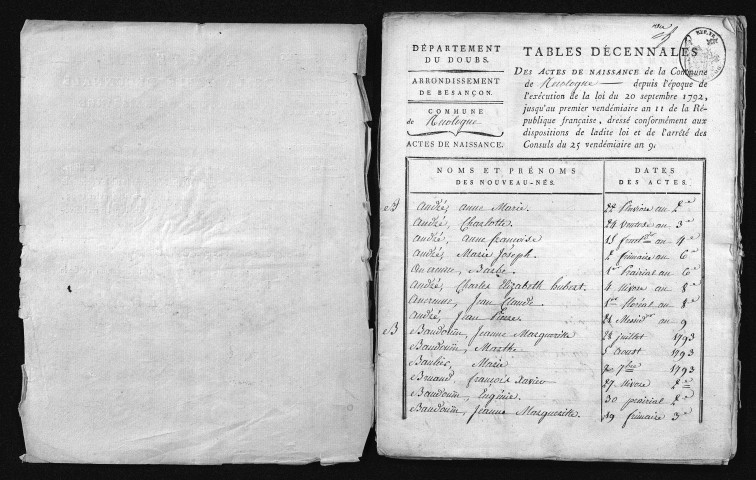 DÉPARTEMENT
DU DOUBS.
ARRONDISSEMENT
DE BESANÇON.
COMMUNE
de Thologue
ACTES DE NAISSANCE.
TABLES DÉCENNALES
DES ACTES DE NAISSANCE de la Commune
de depuis l'époque de
l'exécution de la loi du 20 septembre 1792,
jusqu'au premier vendémiaire an 11 de la Ré-
publique française, dressé conformément aux
dispositions de ladite loi et de l'arrêté des
Consuls du 25 vendémiaire an 9.
NOMS ET PRÉNOMS
DES NOUVEAU-NÉS.
DATES
DES ACTES.
A André, anne Marie. 22 Pluviose an 2e
André, Charlotte. 24 ventose an 3e
André, anne françoise an 4e
André, Marie Joseph. 2 frimaire an 6e
Barbe. 1er Prairial an 6e
André, Charles Elizabeth hubert. 4 Nivose an 8e
Jean Claude 1er floréal an 8e
André, Jean Pierre. Messidor an 9
B Baudouin, Jeanne Marguerite 28 juillet 1793
Baudouin, Marthe 5 aoust 1793
Marie 7bre 1793
françois Xavier 27 Nivose 2e
Baudouin, Eugénie. 30 prairial 2e
Baudouin, Jeanne Marguerite. 19 frimaire 3e